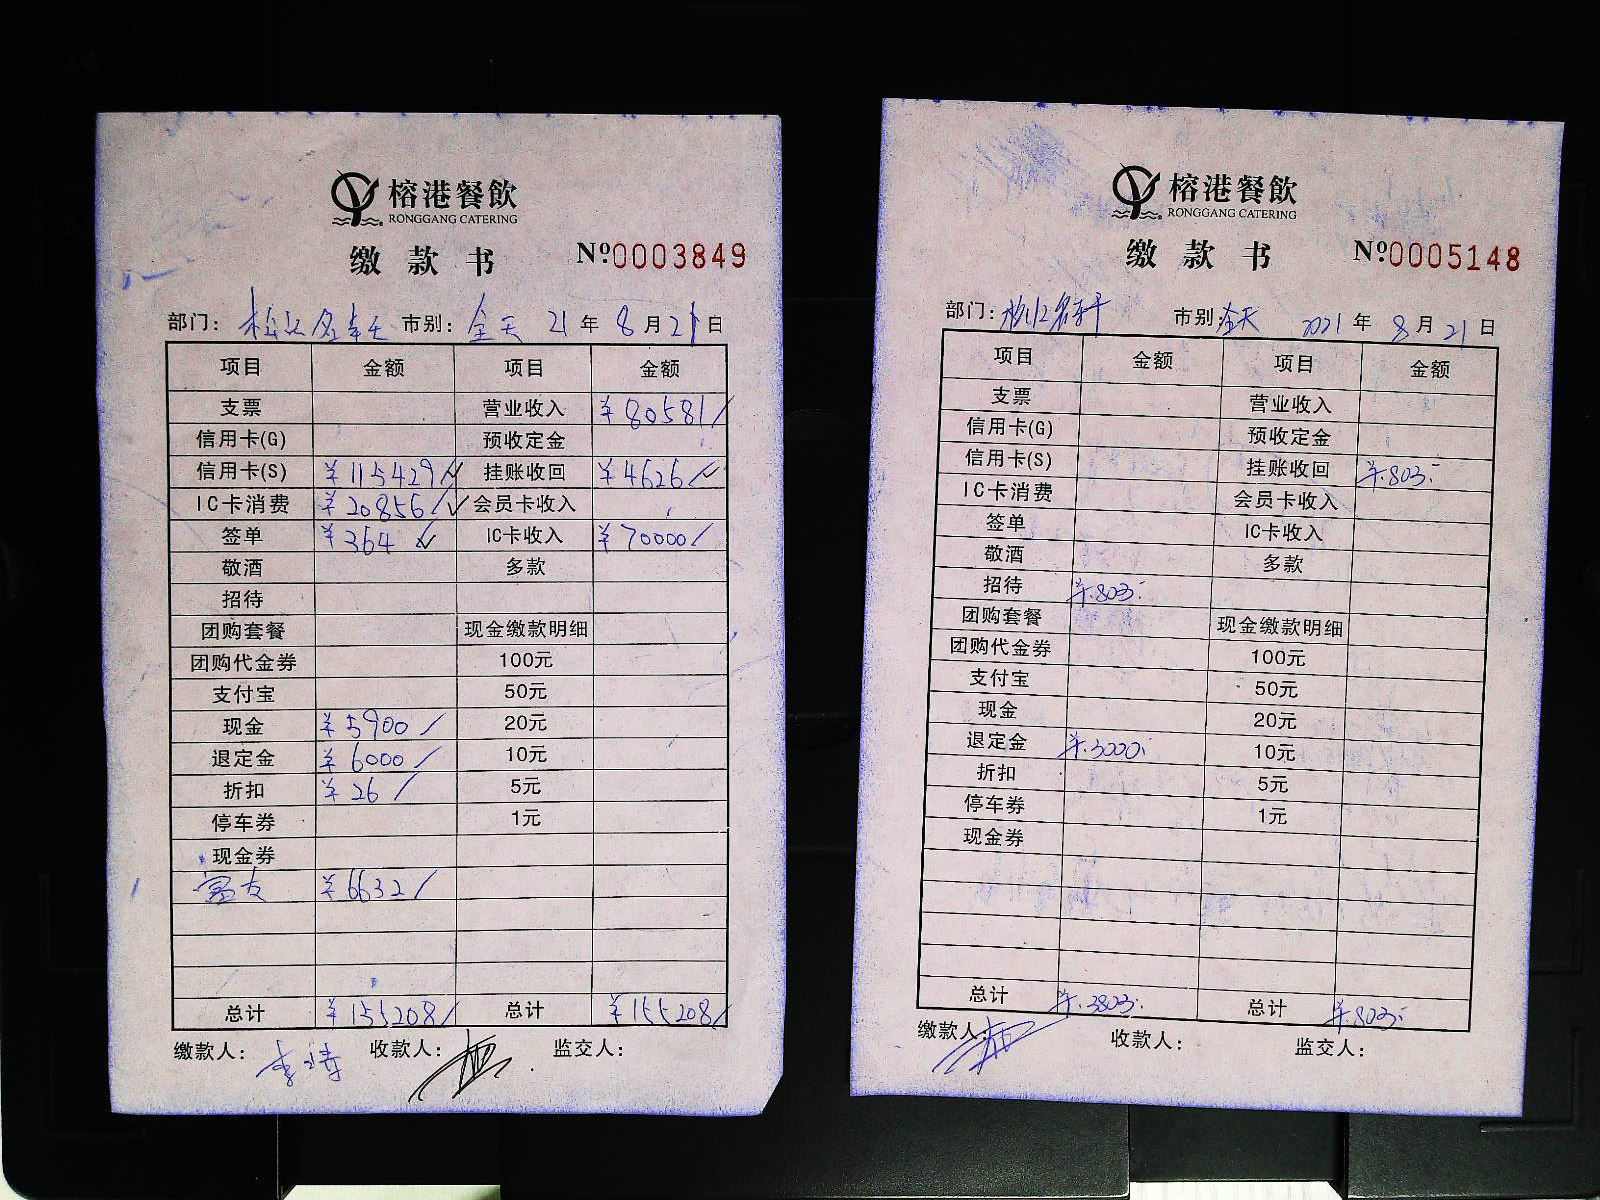 榕港餐飲
RONGGANG CATERING
缴款书 №0003849
部门： 松江名轩 市别： 全天 21年 8月21日
项目 金额 项目 金额
支票 营业收入 ￥80581/
信用卡(G) 预收定金
信用卡(S) ￥115429/ 挂账收回 ￥4626/
IC卡消费 ￥20856/ 会员卡收入
签单 ￥364 IC卡收入 ￥70000/
敬酒 多款
招待
团购套餐 现金缴款明细
团购代金券 100元
支付宝 50元
现金 ￥5900/ 20元
退定金 ￥6000/ 10元
折扣 ￥26/ 5元
停车券 1元
现金券
富友 ￥6632/
总计 ￥155208/ 总计 ￥155208/
缴款人： 李诗 收款人： 监交人：
榕港餐飲
RONGGANG CATERING
缴款书 №0005148
部门： 松江名轩 市别： 全天 2021年 8月21日
项目 金额 项目 金额
支票 营业收入
信用卡(G) 预收定金
信用卡(S) 挂账收回 ￥.803
IC卡消费 会员卡收入
签单 IC卡收入
敬酒 多款
招待 ￥.803
团购套餐 现金缴款明细
团购代金券 100元
支付宝 50元
现金 20元
退定金 10元
折扣 5元
停车券 1元
现金券
总计 总计 ￥.803
缴款人： 收款人： 监交人：